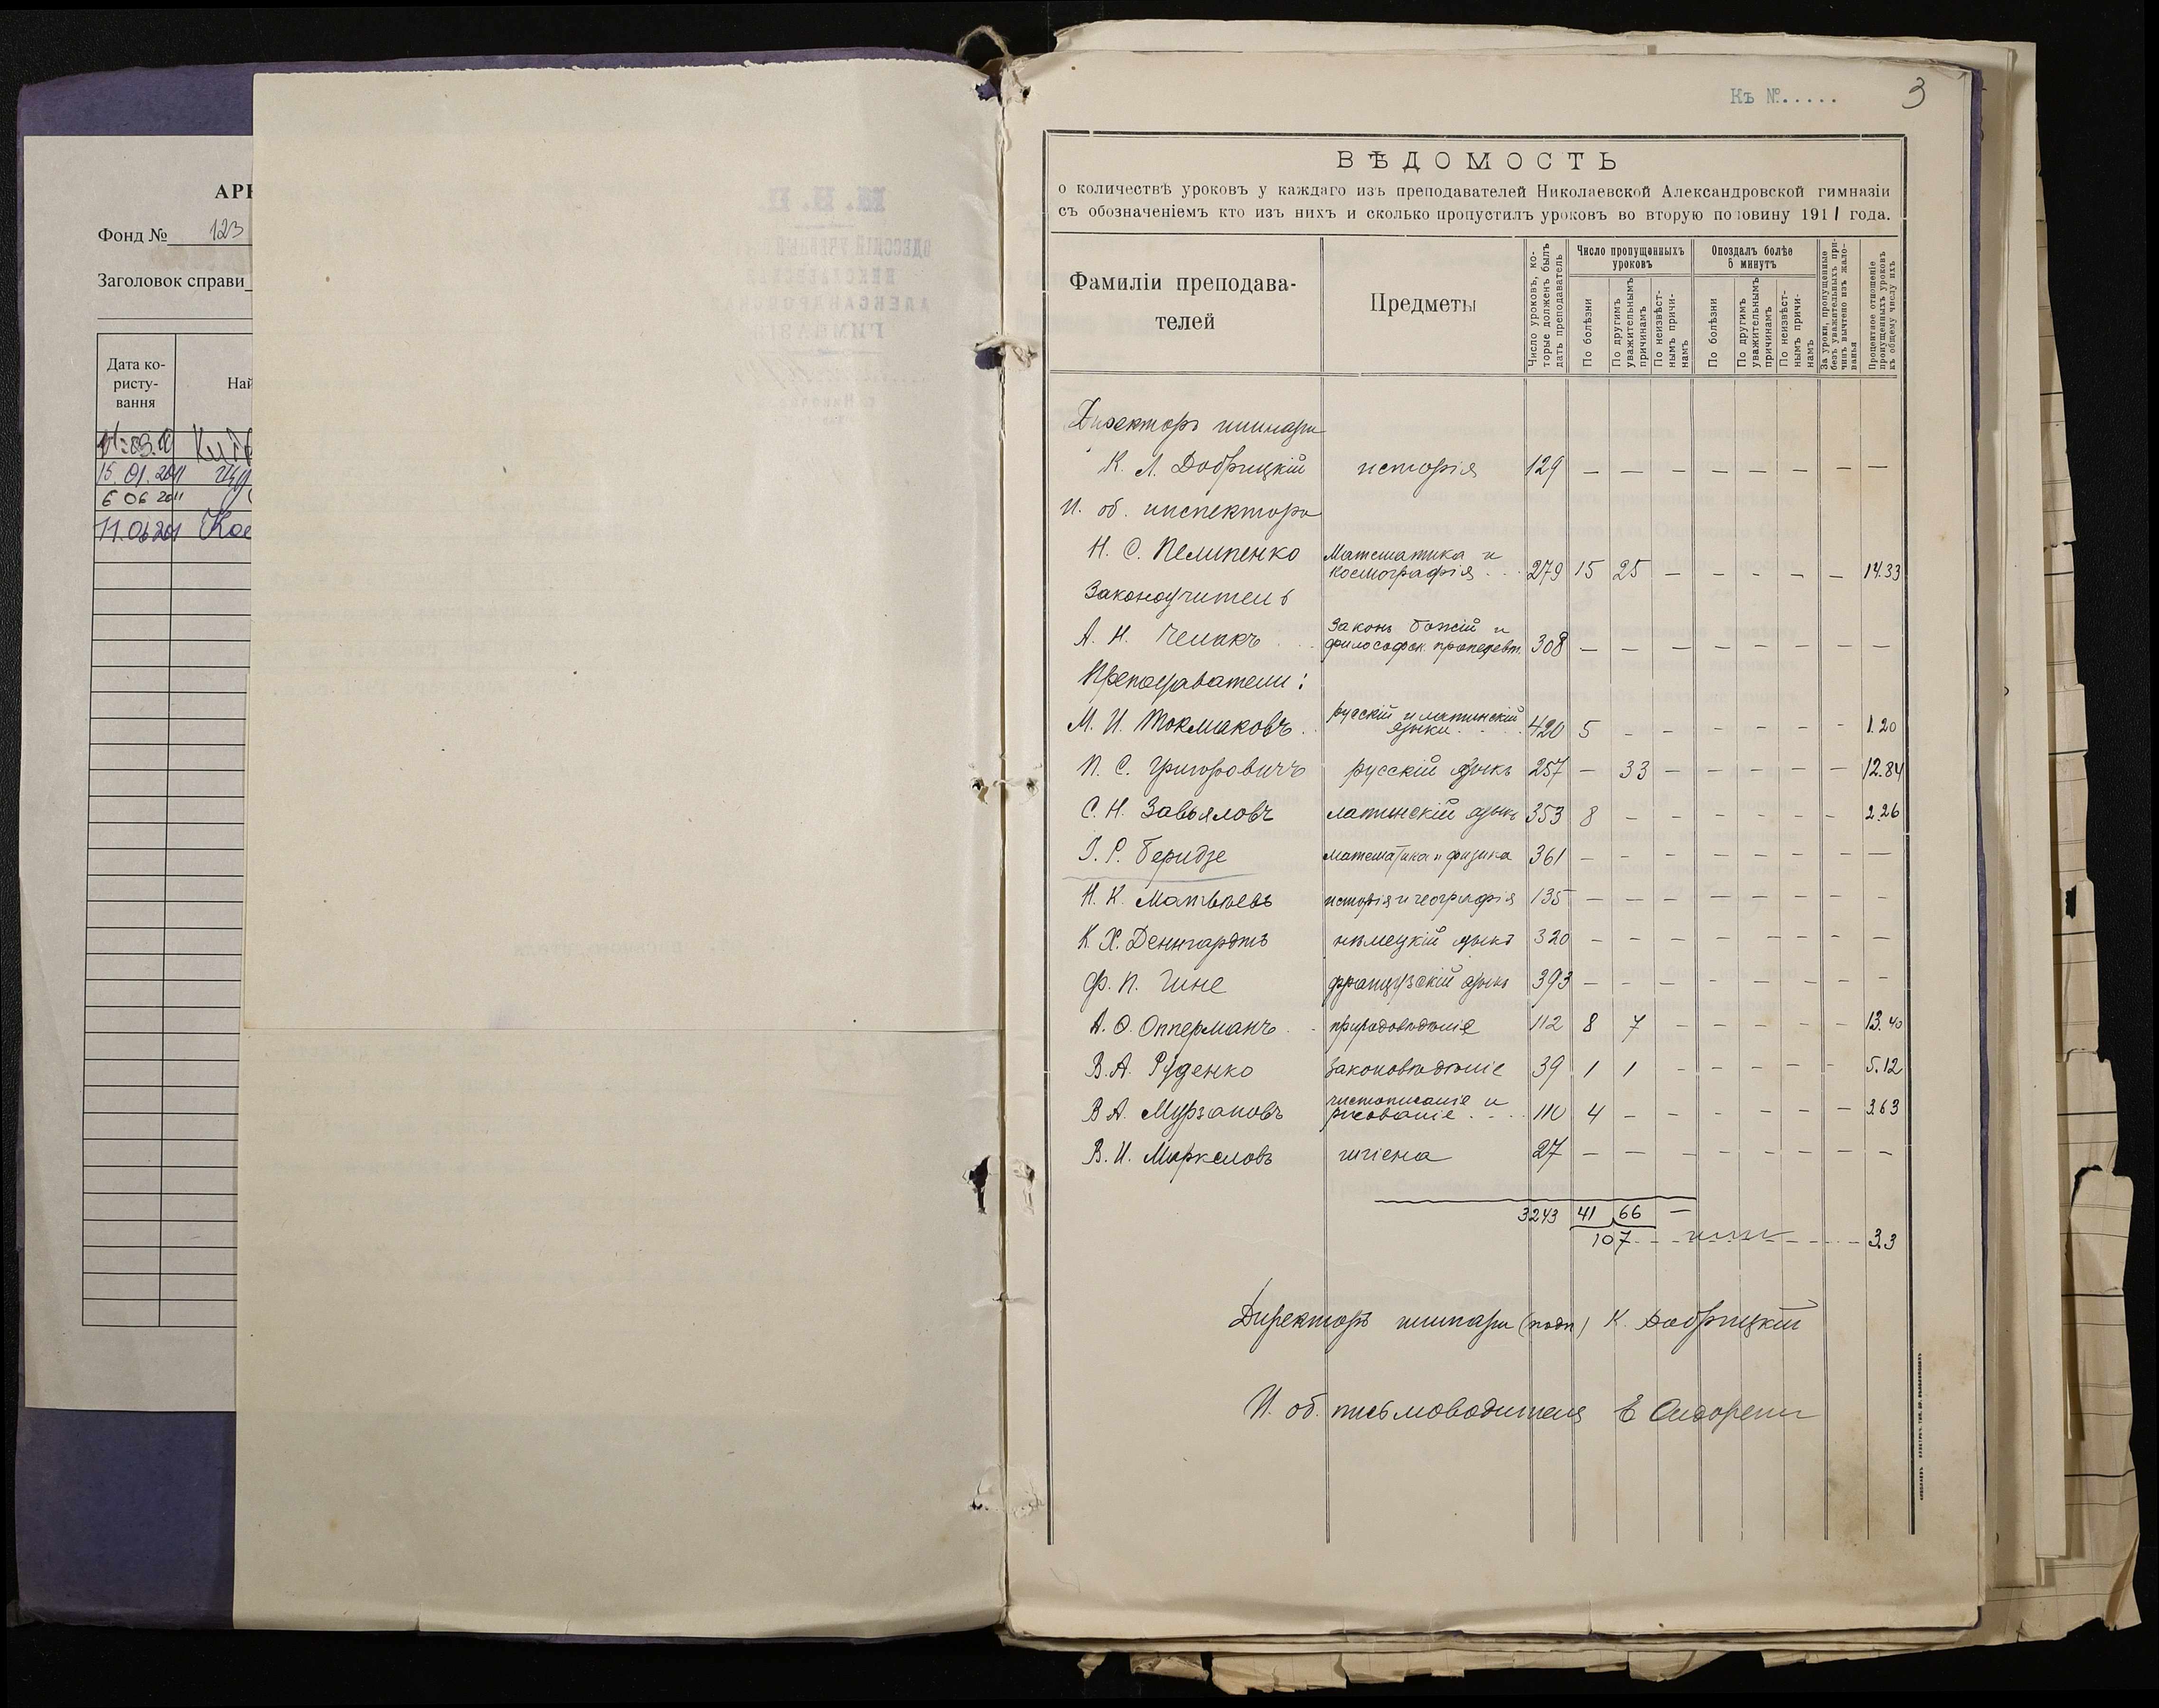 АРІ
Фонд № 123
Заголовок справи
Дата ко-
ристу-
вання
Най
15.01.2011
6 06 2011
Къ №.....
3
ВѢДОМОСТЬ
о количествѣ уроковъ у каждаго изъ преподавателей Николаевской Александровской гимназіи
съ обозначеніемъ кто изъ нихъ и сколько пропустилъ уроковъ во вторую половину 1911 года.
Фамиліи преподава-
телей
Предметы
Число уроковъ, ко-
торые долженъ былъ
дать преподаватель
Число пропущенныхъ
уроковъ
По болѣзни
По другимъ
уважительнымъ
причинамъ
По неизвѣст-
нымъ причи-
намъ
Опоздалъ болѣе
5 минутъ
По болѣзни
По другимъ
уважительнымъ
причинамъ
По неизвѣст-
нымъ причи-
намъ
За уроки, пропущенные
безъ уважительныхъ при-
чинъ вычтено изъ жало-
ванья
Процентное отношеніе
пропущенныхъ уроковъ
къ общему числу ихъ
Директоръ гимназіи
К. Л. Добрицкій исторія 129 — — — — — — — —
И. об. инспектора
Н. С. Пелипенко Математика и
космографія . . . 279 15 25 — — — — — 14.33
Законоучитель
А. Н. Чемакъ . . . Законъ Божій и
философск. пропедевт. 308 — — — — — — — —
Преподаватели:
М. И. Токмаковъ . . русскій и латинскій
языки . . . 420 5 — — — — — — 1.20
П. С. Григоровичъ русскій языкъ 257 — 33 — — — — — 12.84
С. Н. Завьяловъ латинскій языкъ 353 8 — — — — — — 2.26
І. Р. Беридзе математика и физика 361 — — — — — — — —
Н. К. Матвѣевъ исторія и географія 135 — — — — — — — —
К. Х. Деннгардтъ нѣмецкій языкъ 320 — — — — — — — —
Ф. П. Гине французскій языкъ 393 — — — — — — — —
А. О. Опперманъ . . природовѣдѣніе 112 8 7 — — — — — 13.40
В. А. Руденко Законовѣдѣніе 39 1 1 — — — — — 5.12
В. А. Мурзановъ чистописаніе и
рисованіе . . . 110 4 — — — — — — 3.63
В. И. Маркеловъ гигіена 27 — — — — — — — —
3243 41 66 —
107 3.3
Директоръ гимназіи (подп) К. Добрицкій
И. об. письмоводителя